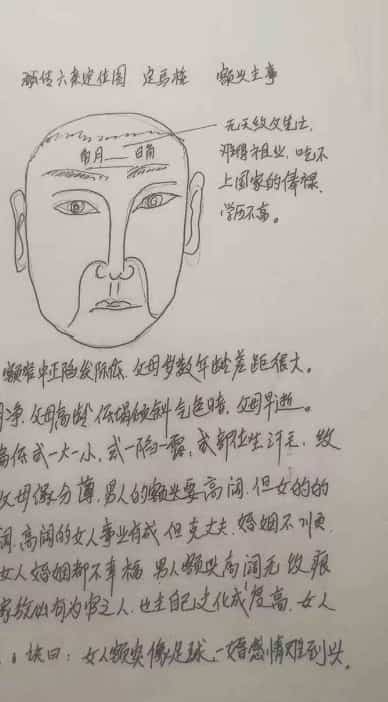 六亲定位图 定马桩 额头主事
月 日角
无天纹又生士,
祖业,吃不
上国家的俸禄,
学历不高。
额堆中正陷发际低,父母岁数年龄差距很大。
净,父母高龄低塌倾斜气色暗,父母早逝。
高低或一大一小,或一陷一露,或部位生汗毛,纹
父母缘分薄,男人的额头要高阔,但女的的
阔,高阔的女人事业有成,但克丈夫,婚姻不顺
女人婚姻都不幸福 男人额头高阔无纹痕
家故出有为官之人,也主自己文化成度高,女人
诀曰:女人额突像足球,一婚感情难到头。